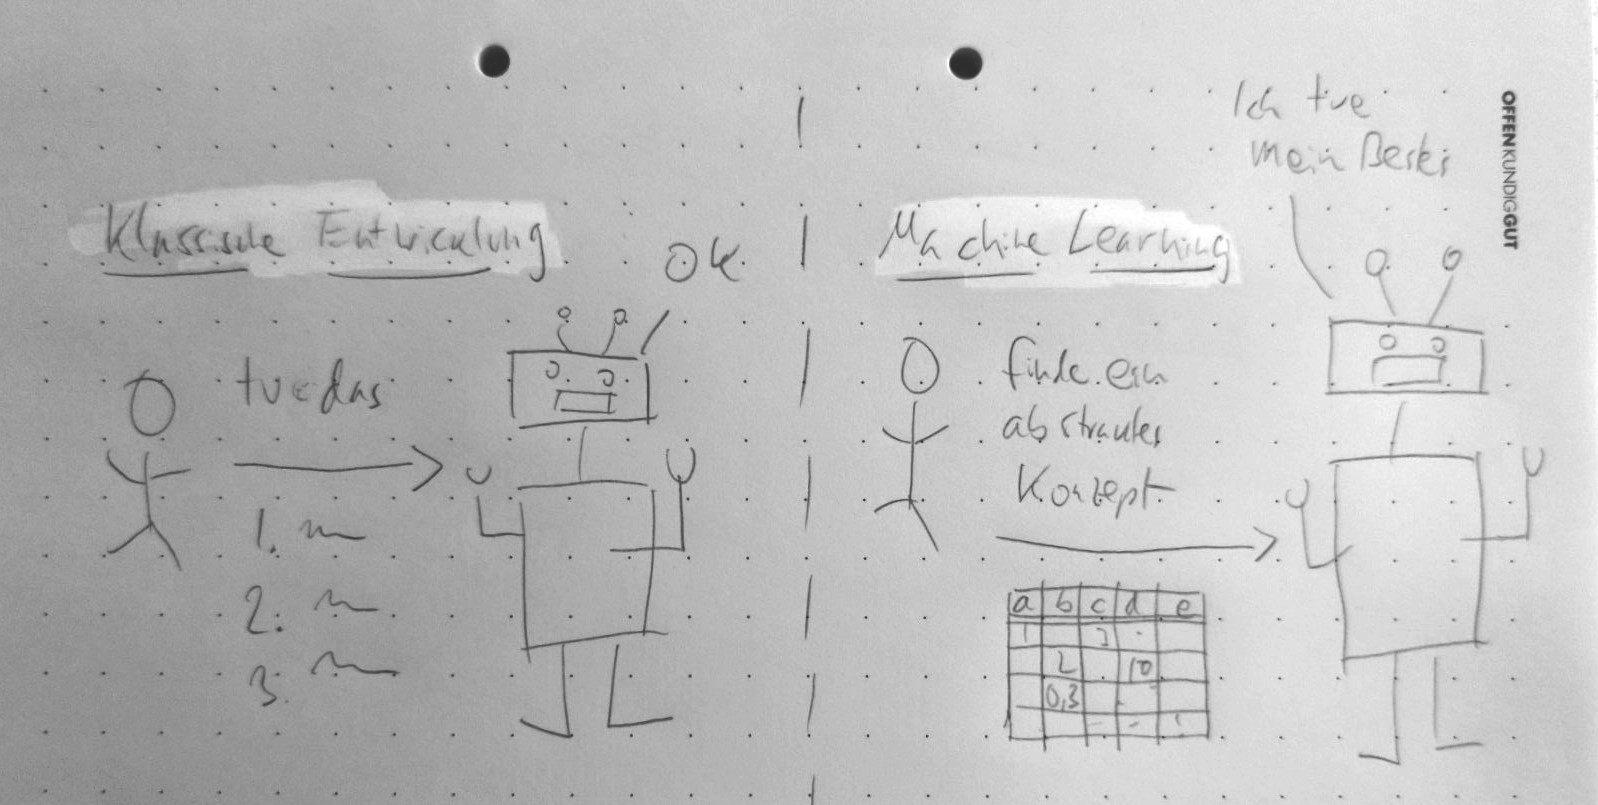 Klassische Entwicklung
OK
tue das
1.
2.
3.
Machine Learning
Ich tue
mein Bestes
finde ein
abstraktes
Konzept
a b c d e
1 3
2 10
0,3
OFFENKUNDIGGUT